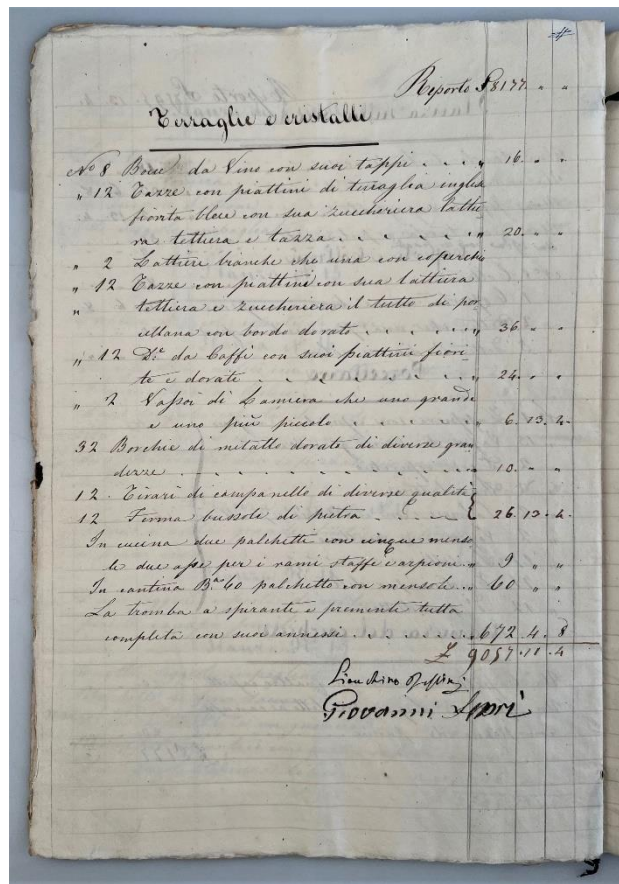 Riporto £ 8177 „ „
Terraglie e cristalli
N.º 8 Bocce da Vino con suoi tappi . . . „ 16. „ „
„ 12 Tazze con piattini di terraglia inglese
fiorita bleu con sua zuccheriera latte
ra tettiera e tazza . . . . . „ 20. „ „
„ 2 Lattiere bianche che una con coperchio
„ 12 Tazze con piattini con sua lattiera
„ tettiera e zuccheriera il tutto di por
cellana con bordo dorato . . . . . „ 36 „ „
„ 12 D.e da Caffè con suoi piattini fiori
te e dorate . . . . . . . „ 24. „ „
„ 2 Vassoi di Lamiera che uno grande
e uno più piccolo . . . . . . „ 6. 13. 4.
32 Borchie di mitallo dorato di diverse gran
dezze . . . . . . . . . „ 10. „ „
12. Tirari di campanello di diverse qualità
12 Ferma bussole di pietra . . . . . 26. 13. 4.
In cucina due palchetti con cinque menso
le due asse per i rami staffe e arpioni . „ 9 „ „
In cantina B.a 60 palchetto con mensole . „ 60 „ „
La tromba a spirante e premente tutta
completa con suoi annessi . . . . . 672. 4. 8
£ 9057. 11. 4
Giovanni